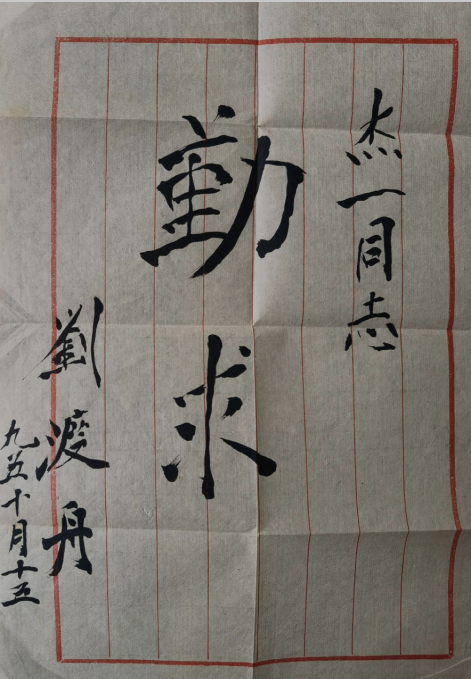 杰一同志
勤求
劉渡舟
九五十月十五